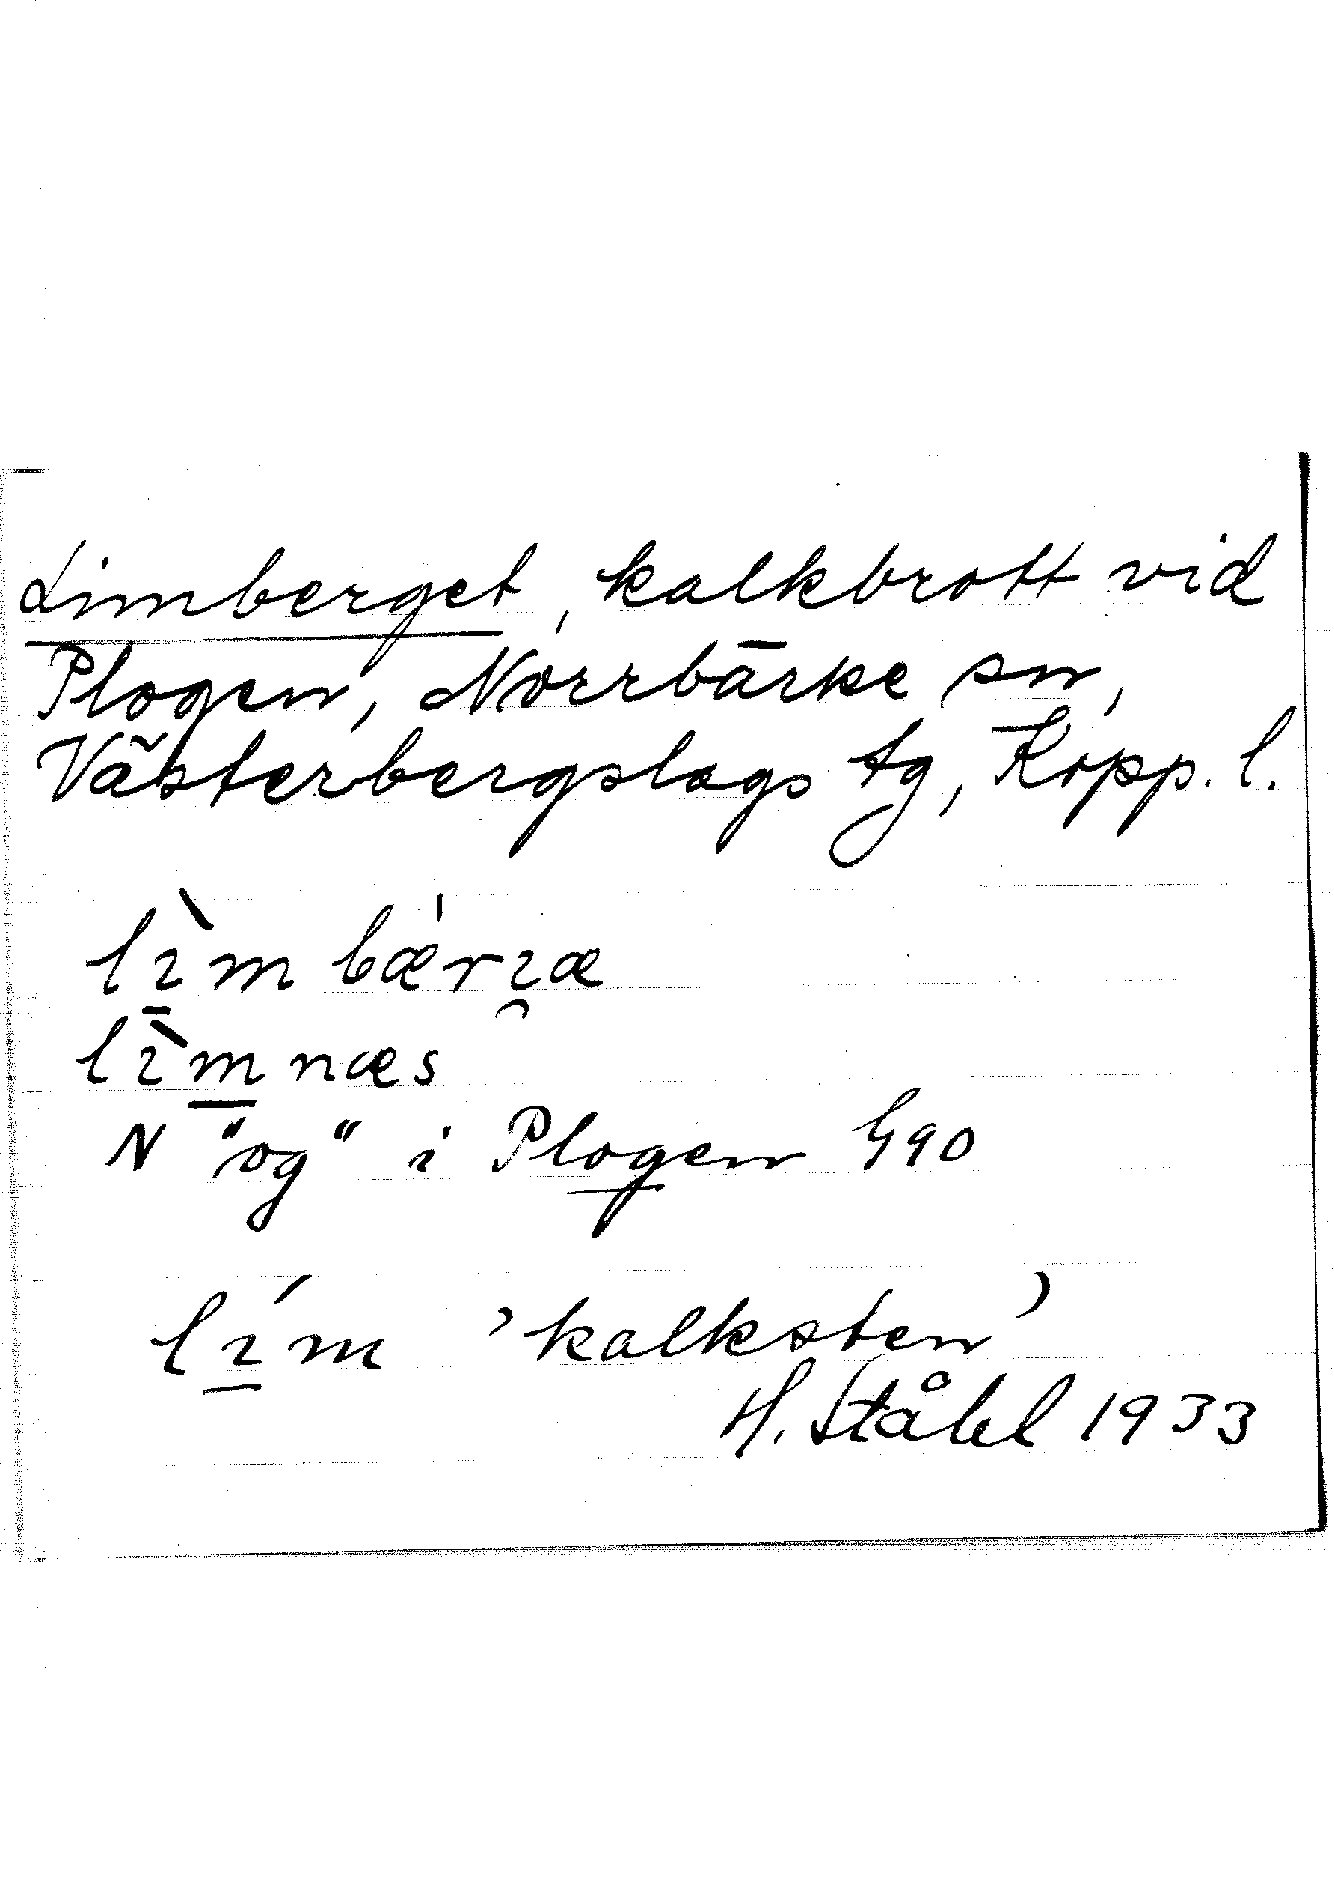 Limberget, kalkbrott vid
Plogen, Norrbärke sn,
Västerbergslags tg, Kopp. l.
lìm bǽrıæ
lìmnæs
N "og" i Plogen G90
lím 'kalksten'
H. Ståhl 1933